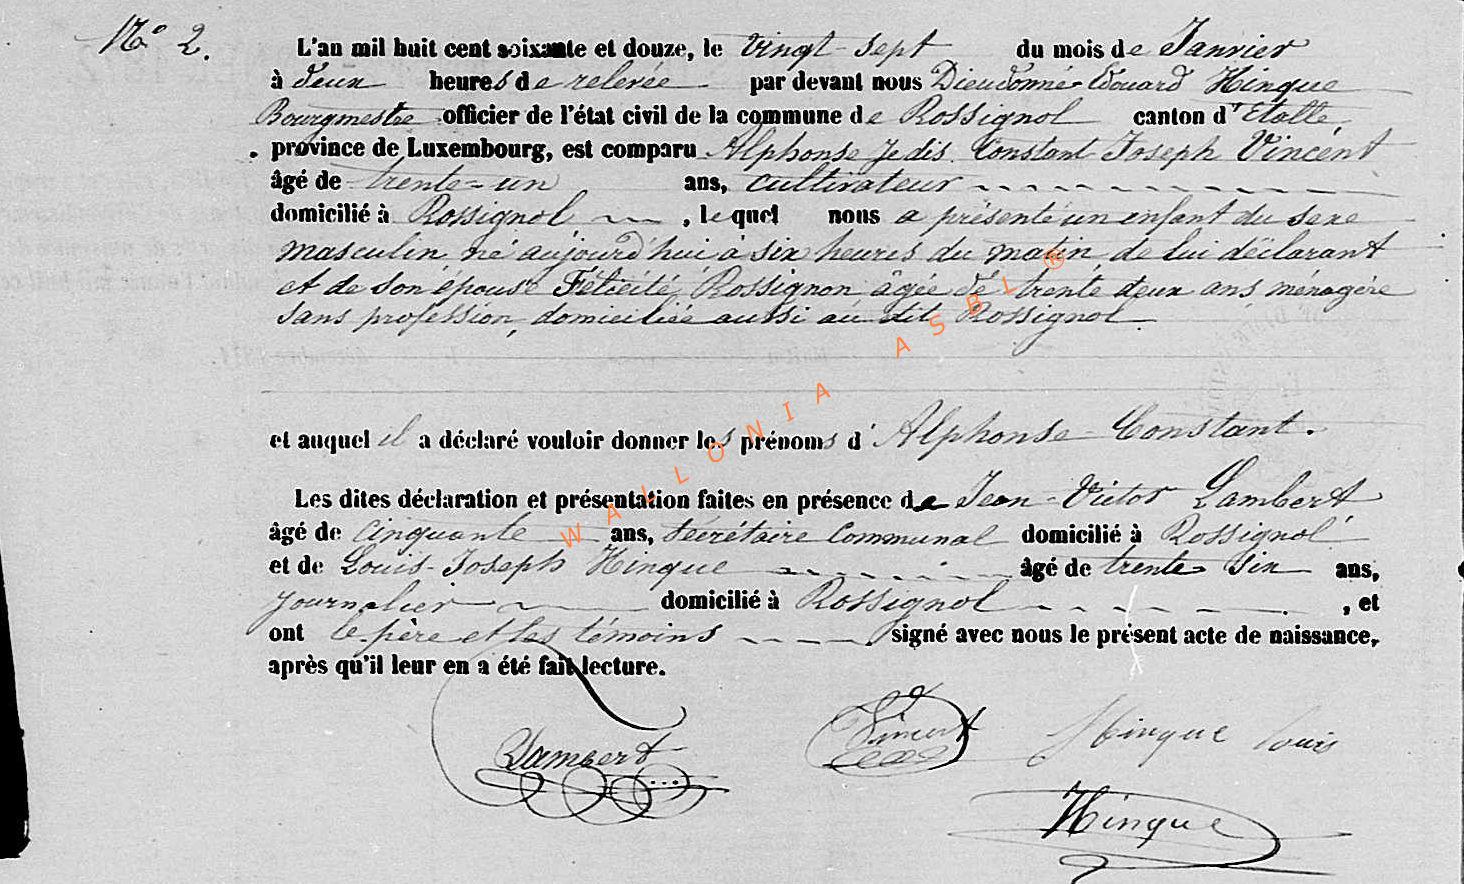 N° 2.
L'an mil huit cent soixante et douze, le vingt-sept du mois de Janvier
à deux heures de relevée par devant nous Dieudonné Edouard Hinque
Bourgmestre officier de l'état civil de la commune de Rossignol canton d'Etalle,
province de Luxembourg, est comparu Alphonse Constant Joseph Vincent
âgé de trente-un ans, cultivateur
domicilié à Rossignol, lequel nous a présenté un enfant du sexe
masculin né aujourd'hui à six heures du matin de lui déclarant
et de son épouse Félicité Rossignon âgée de trente deux ans ménagère
sans profession, domiciliée aussi au dit Rossignol.
et auquel il a déclaré vouloir donner les prénoms d'Alphonse-Constant.
Les dites déclaration et présentation faites en présence de Jean-Victor Lambert
âgé de cinquante ans, sécrétaire Communal domicilié à Rossignol
et de Louis-Joseph Hinque âgé de trente six ans,
journalier domicilié à Rossignol, et
ont le père et les témoins signé avec nous le présent acte de naissance,
après qu'il leur en a été fait lecture.
Lambert Vincent Hinque Louis
Hinque
WALLONIA ASBL ®